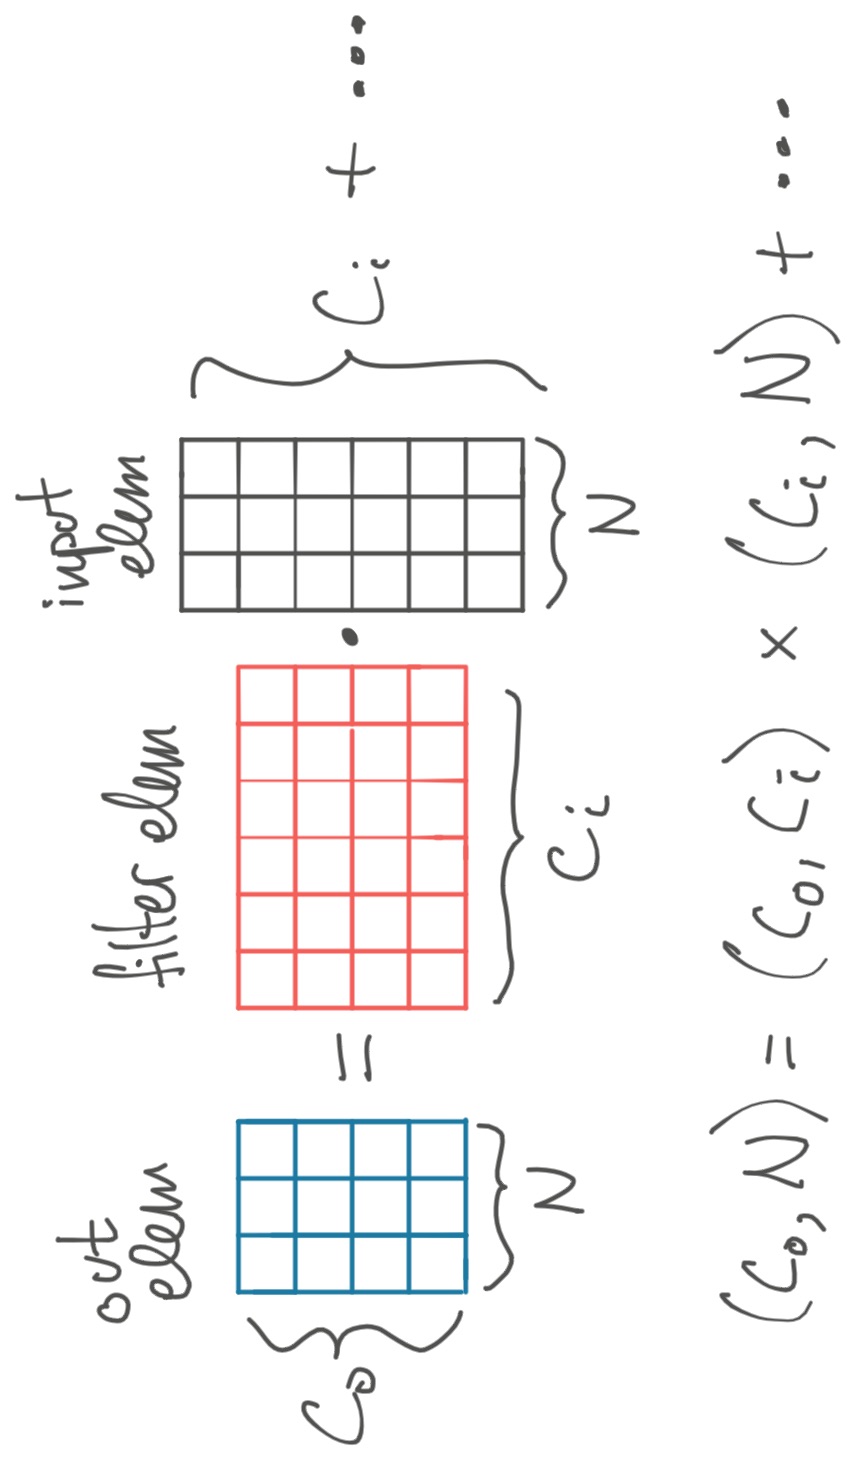 out
elem
filter elem
input
elem
C₀ = · Cᵢ + ...
N
Cᵢ
N
(C₀, N) = (C₀, Cᵢ) × (Cᵢ, N) + ...